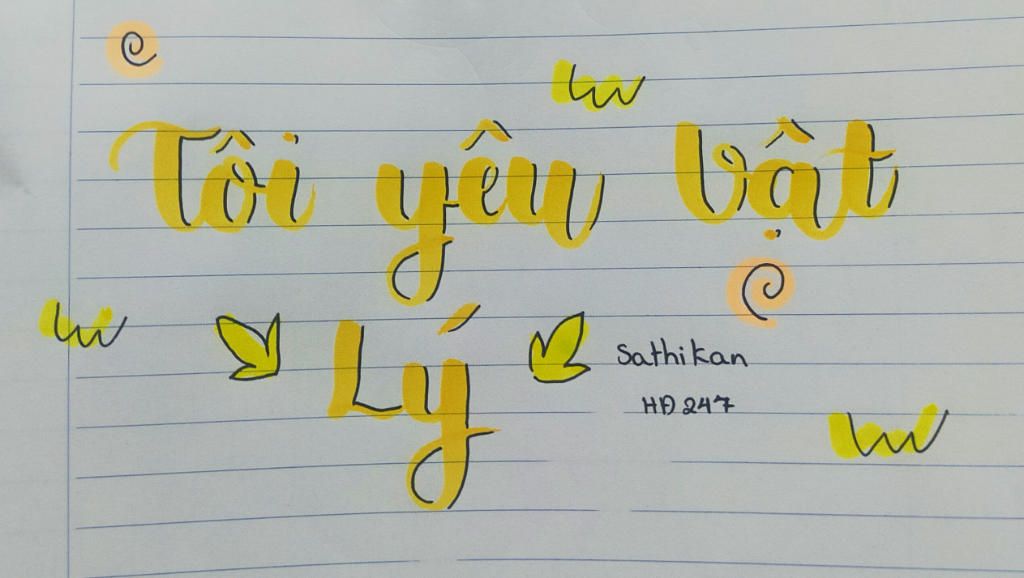 Tôi yêu vật
Lý
Sathikan
HĐ247